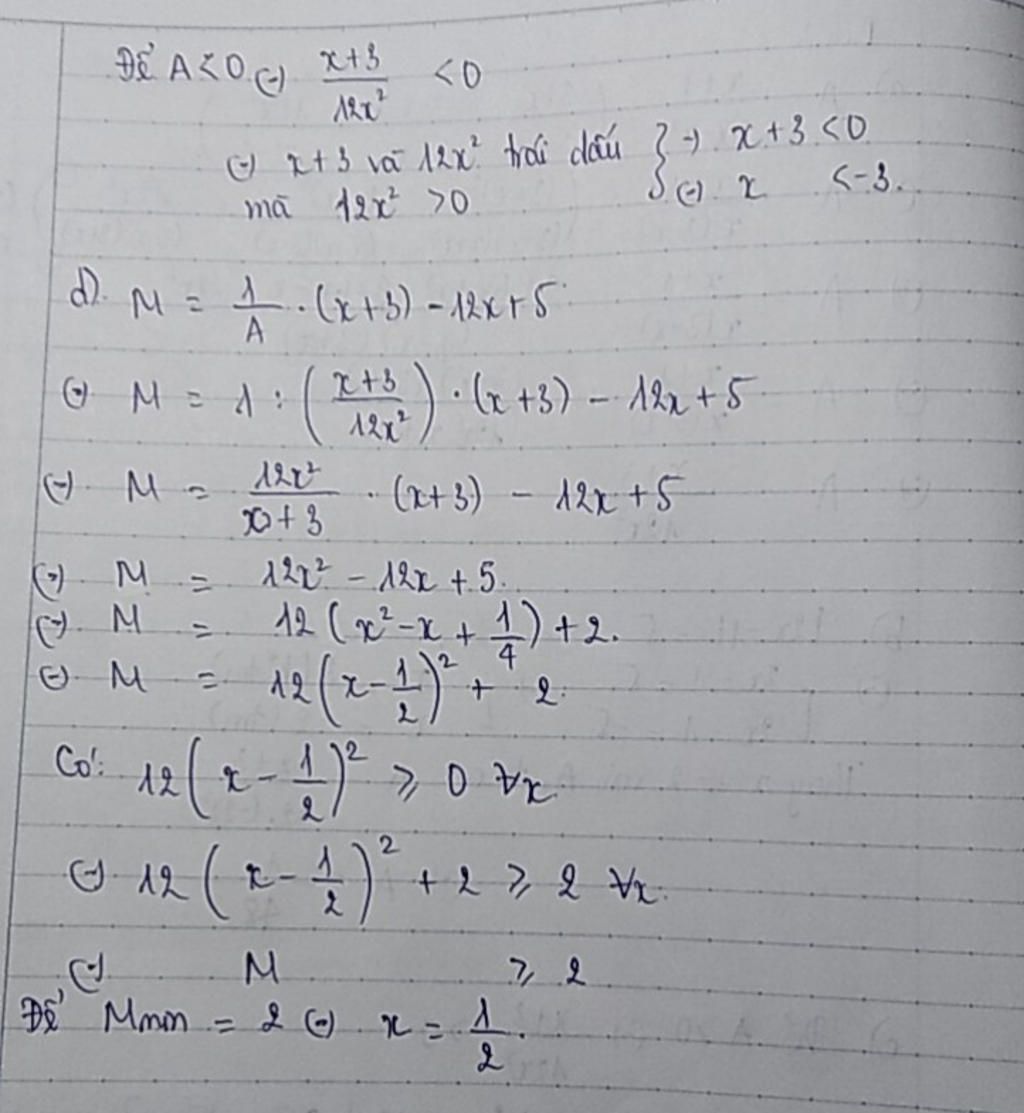 Để A < 0 (=) \frac{x+3}{12x^2} < 0
(=) x+3 và 12x^2 trái dấu } => x+3 < 0
mà 12x^2 > 0 } (=) x < -3.
d). M = \frac{1}{A} . (x+3) - 12x + 5
(=) M = 1 : (\frac{x+3}{12x^2}) . (x+3) - 12x + 5
(=) M = \frac{12x^2}{x+3} . (x+3) - 12x + 5
(=) M = 12x^2 - 12x + 5.
(=) M = 12(x^2 - x + \frac{1}{4}) + 2.
(=) M = 12(x - \frac{1}{2})^2 + 2.
Có: 12(x - \frac{1}{2})^2 ⩾ 0 ∀x.
(=) 12(x - \frac{1}{2})^2 + 2 ⩾ 2 ∀x.
(=) M ⩾ 2
Để Mmin = 2 (=) x = \frac{1}{2}.